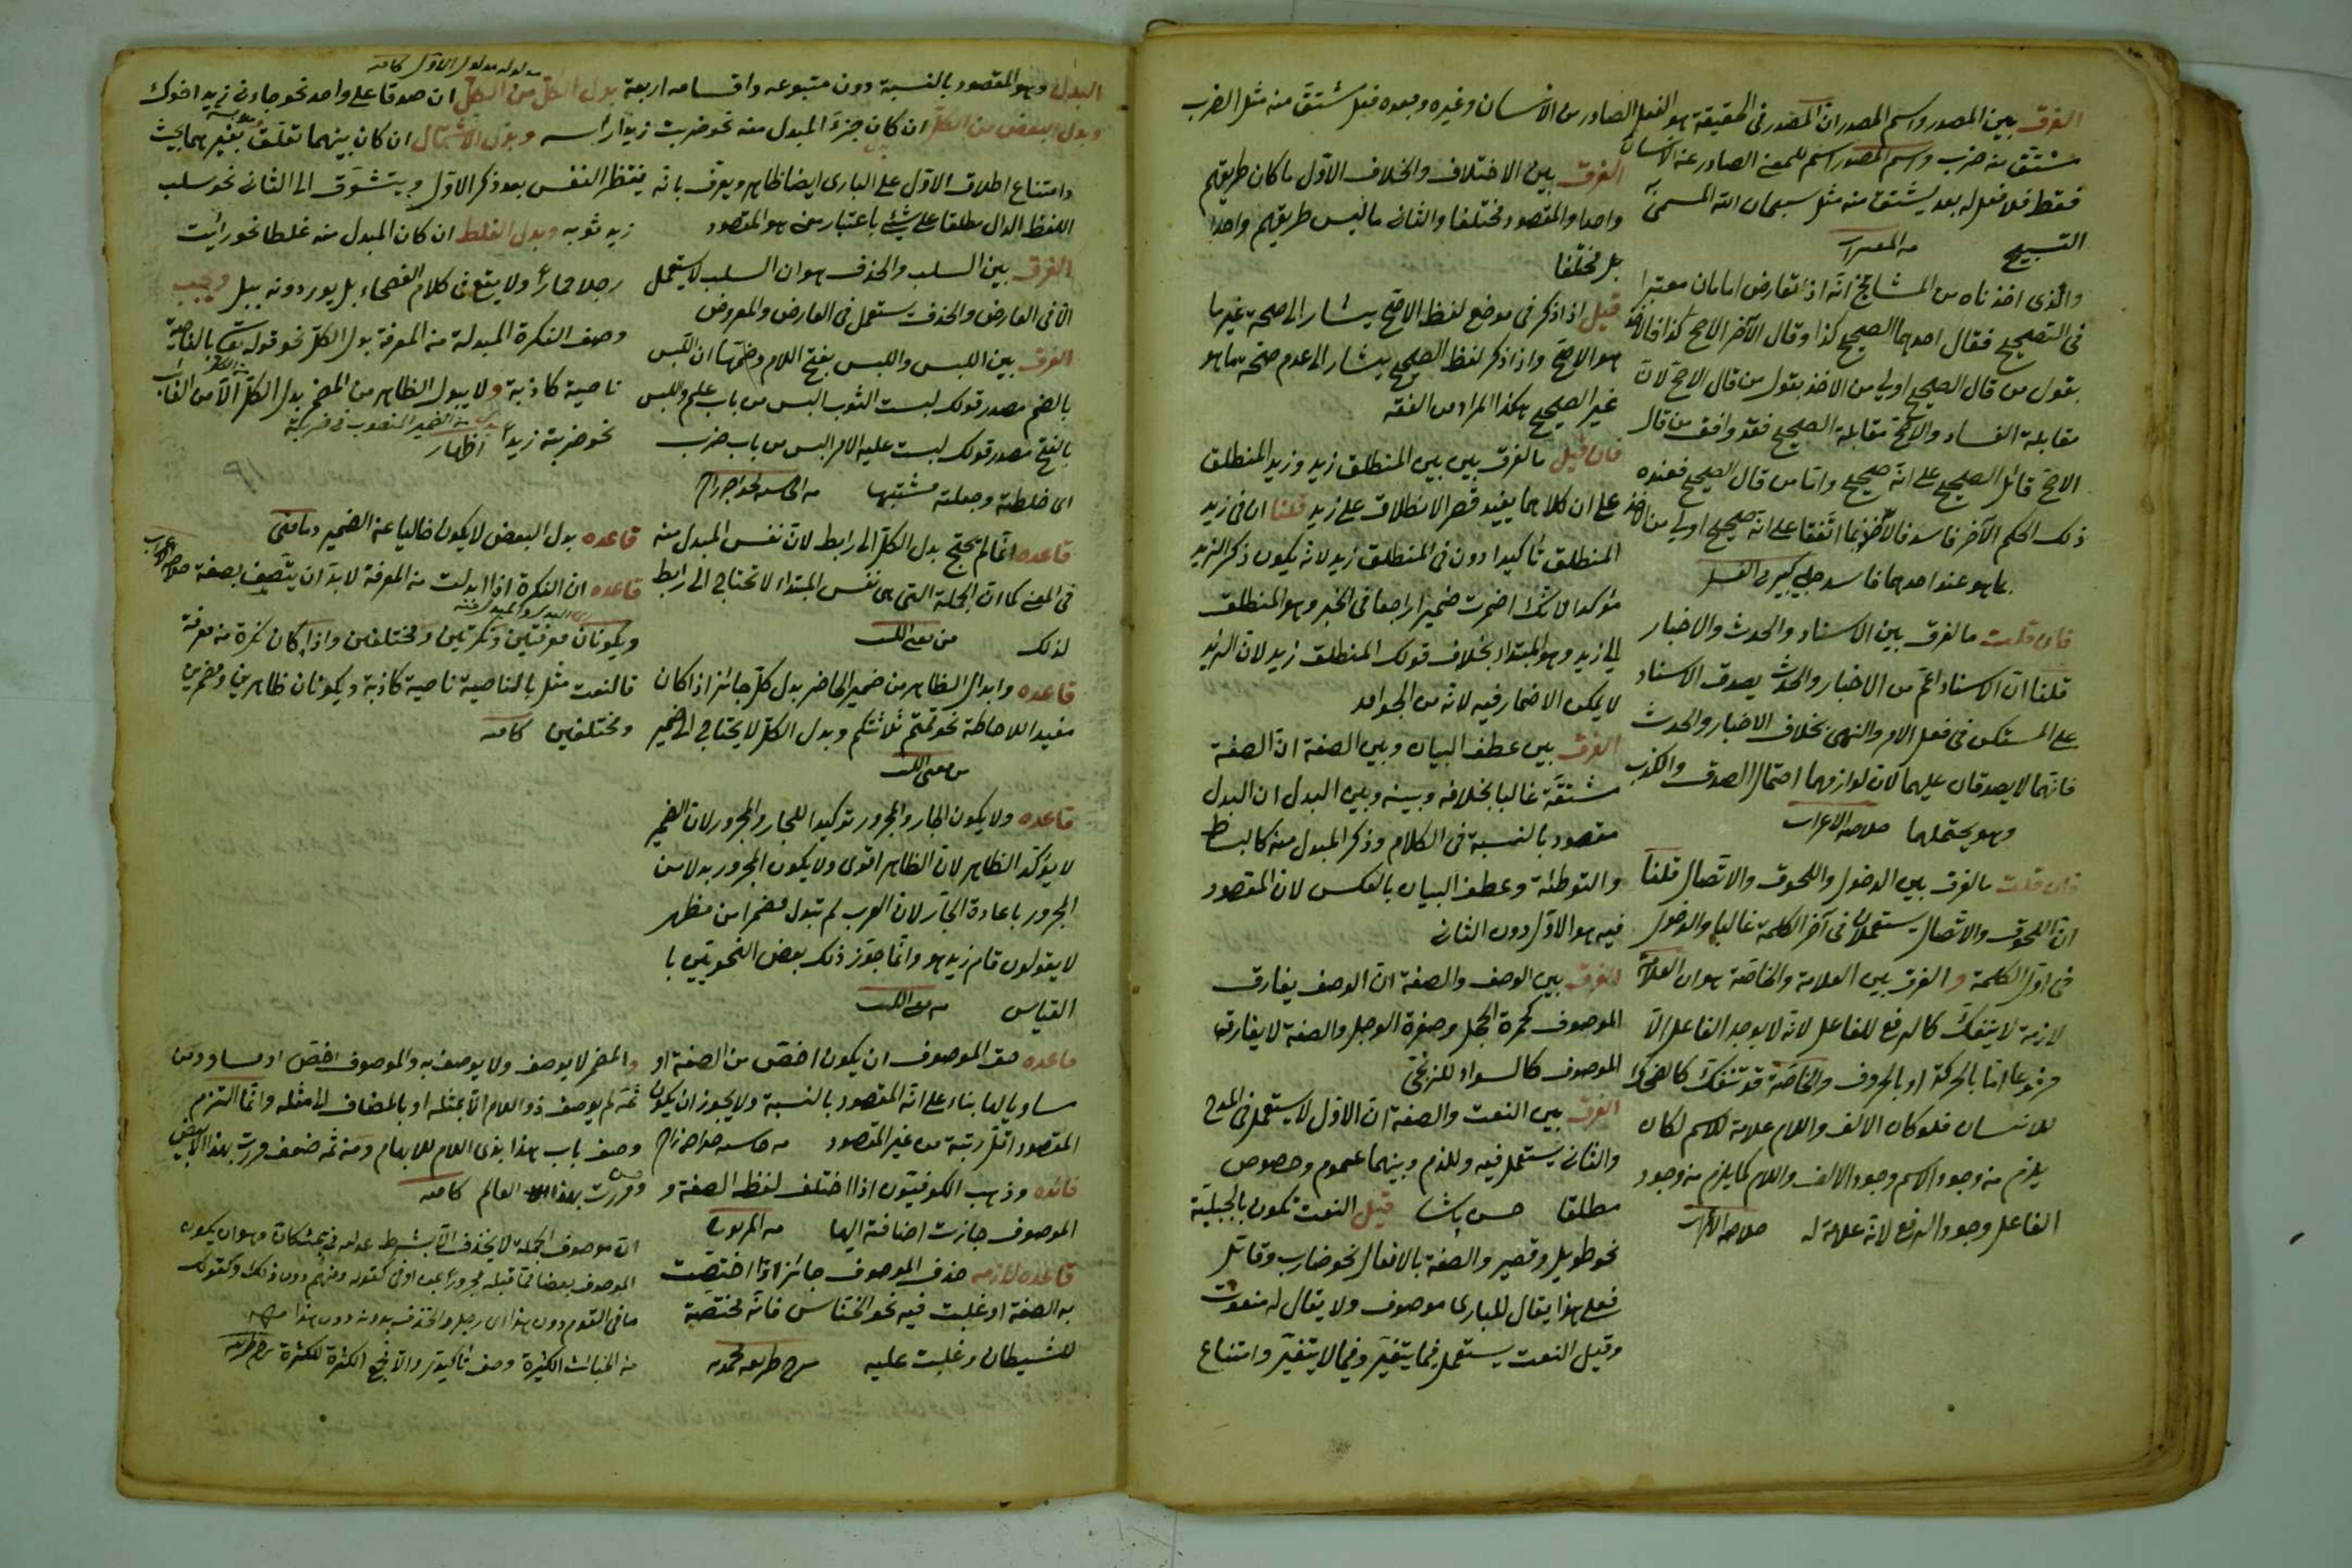 الفرق بين المصدر واسم المصدر ان المصدر فى الحقيقة هو الفعل الصادر من الانسان وغيره وبعده فيل شتق منه مثل الضرب
مشتق منه ضرب واسم المصدر اسم للمعنى الصادر عن الانسان
فقط فلا فعل له بعد يشتق منه مثل سبحان الله المسمى
التسبيح
والذى اخذناه من المشايخ انه اذا تعارض امامان معتبرا
فى التصحيح فقال احدهما الصحيح كذا وقال الآخر الاصح كذا فالاخذ
بقول من قال الصحيح اولى من الاخذ بقول من قال الاصح لان
مقابلة الفساد والاصح مقابلة الصحيح فقد وافق من قال
الاصح قائل الصحيح على انه صحيح واما من قال الصحيح فعنده
ذلك الحكم الآخر فاسد فالاخذ بما اتفقا على انه صحيح اولى من الاخذ
بما هو عند احدهما فاسد جلبى كبير
فان قلت ما الفرق بين الاسناد والحدث والاخبار
قلنا ان الاسناد اعم من الاخبار والحدث يصدق الاسناد
على المستكن فى فعل الامر والنهى بخلاف الاخبار والحدث
فانهما لا يصدقان عليهما لان لوازمهما احتمال الصدق والكذب
وهو يحتملهما خلاصه الاعراب
فان قلت ما الفرق بين الدخول واللحوق والاتصال قلنا
ان اللحوق والاتصال يستعملان فى آخر الكلمة غالبا والدخول
فى اول الكلمة والفرق بين العلامة والخاصة هو ان العلامة
لازمة لا ينفك كالرفع للفاعل لانه لا يوجد الفاعل الا
مرفوعا اما بالحركة او بالحروف والخاصة قد تنفك كالضحك
للانسان فلو كان الالف واللام علامة للاسم لكان
يلزم من وجود الاسم وجود الالف واللام كما يلزم من وجود
الفاعل وجود الرفع لانه علامة له خلاصه الاعراب
الفرق بين الاختلاف والخلاف الاول ما كان طريقهم
واحدا والمقصود مختلفا والثانى ما ليس طريقهم واحدا
بل مختلفا
قيل اذا ذكر فى موضع لفظ الاصح يشار الى صحة غير ما
هو الاصح واذا ذكر لفظ الصحيح يشار الى عدم صحة ما هو
غير الصحيح هكذا المراد من الفقه
فان قيل ما الفرق بين بين المنطلق زيد وزيد المنطلق
على ان كلاهما يفيد قصر الانطلاق على زيد قلنا ان فى زيد
المنطلق تأكيدا دون فى المنطلق زيد لانه يكون ذكر الزيد
مؤكدا لانك اضمرت ضميرا راجعا فى الخبر وهو المنطلق
الى زيد وهو المبتدا بخلاف قولك المنطلق زيد لان الزيد
لا يمكن الاضمار فيه لانه من الجوامد
الفرق بين عطف البيان وبين الصفة ان الصفة
مشتقة غالبا بخلافه وبينه وبين البدل ان البدل
مقصود بالنسبة فى الكلام وذكر المبدل منه كالبساط
والتوطئة وعطف البيان بالعكس لان المقصود
فيه هو الاول دون الثانى
الفرق بين الوصف والصفة ان الوصف يفارق
الموصوف كحمرة الخجل وصفرة الوجل والصفة لا يفارق
الموصوف كالسواد للزنجى
الفرق بين النعت والصفة ان الاول لا يستعمل فى المدح
والثانى يستعمل فيه وللذم وبينهما عموم وخصوص
مطلقا حسن پاشا قيل النعت تكون بالجبلية
نحو طويل وقصير والصفة بالافعال نحو ضارب وقاتل
فعلى هذا يقال للبارى موصوف ولا يقال له منعوت
وقيل النعت يستعمل فيما يتغير وفيما لا يتغير وامتناع
مدلوله مدلول الاول
البدل وهو المقصود بالنسبة دون متبوعه واقسامه اربعة بدل الكل من الكل ان صدقا على واحد نحو جاءنى زيد اخوك
وبدل البعض من الكل ان كان جزء المبدل منه نحو ضربت زيدا رأسه وبدل الاشتمال ان كان بينهما تعلق بغيرهما بحيث
وامتناع اطلاق الاول على البارى ايضا ظاهر ويعرف بانه ينتظر النفس بعد ذكر الاول ويتشوق الى الثانى نحو سلب
اللفظ الدال مطلقا على شئ باعتبار معنى هو المقصود
الفرق بين السلب والحذف هو ان السلب لا يستعمل
الا فى العارض والحذف يستعمل فى العارض والمعروض
الفرق بين اللبس واللبس بفتح اللام وضمها ان اللبس
بالضم مصدر قولك لبست الثوب البس من باب علم واللبس
بالفتح مصدر قولك لبست عليه الامر البس من باب ضرب
اى خلطته وجعلته مشتبها
قاعده انما لم يحتج بدل الكل الى رابط لان نفس المبدل منه
فى المعنى كما ان الجملة التى هى نفس المبتدا لا تحتاج الى رابط
لذلك
قاعده وابدال الظاهر من ضمير الحاضر بدل كل جائز اذا كان
مفيدا للاحاطة نحو قمتم ثلاثتكم وبدل الكل لا يحتاج الى ضمير
قاعده ولا يكون الجار والمجرور توكيدا للجار والمجرور لان الضمير
لا يؤكد الظاهر لان الظاهر اقوى ولا يكون المجرور بدلا من
المجرور باعادة الجار لان العرب لم تبدل مضمرا من مظهر
لا يقولون قام زيد هو وانما جوز ذلك بعض النحويين با
القياس
قاعده حق الموصوف ان يكون اخص من الصفة او
مساويا لها بناء على انه المقصود بالنسبة ولا يجوز ان يكون
المقصود اقل رتبة من غير المقصود
فائده وذهب الكوفيون اذا اختلف لفظ الصفة و
الموصوف جازت اضافة اليها
قاعده لازمه حذف الموصوف جائز اذا اختصت
به الصفة او غلبت فيه نحو الخناس فانه مختصة
للشيطان وغلبت عليه
زيد ثوبه وبدل الغلط ان كان المبدل منه غلطا نحو رأيت
رجلا حمارا ولا يقع فى كلام الفصحاء بل يوردونه ببل ويجب
وصف النكرة المبدلة من المعرفة بدل الكل نحو قوله تعالى بالناصية
ناصية كاذبة ولا يبدل الظاهر من المضمر بدل الكل الا من الغائب
نحو ضربته زيدا اظهار
قاعده بدل البعض لا يكون خاليا عن الضمير
قاعده ان النكرة اذا ابدلت من المعرفة لا بد ان يتصف بصفة
ويكونان معرفتين ونكرتين ومختلفين واذا كان نكرة من معرفة
فالنعت مثل بالناصية ناصية كاذبة ويكونان ظاهرين ومضمرين
ومختلفين كافيه
والمضمر لا يوصف ولا يوصف به والموصوف اخص او مساو ومن
ثمه لم يوصف ذو اللام الا بمثله او بالمضاف الى مثله وانما التزم
وصف باب هذا بذى اللام للابهام ومنه ثمه ضعف مررت بهذا الابيض
وحسن مررت بهذا العالم كافيه
ان موصوف الجملة لا يحذف الا بشرط
الموصوف بعضا مما قبله مجرورا بمن او فى كقوله ومنهم دون ذلك وكقولك
ما فى القوم دون هذا اى رجل